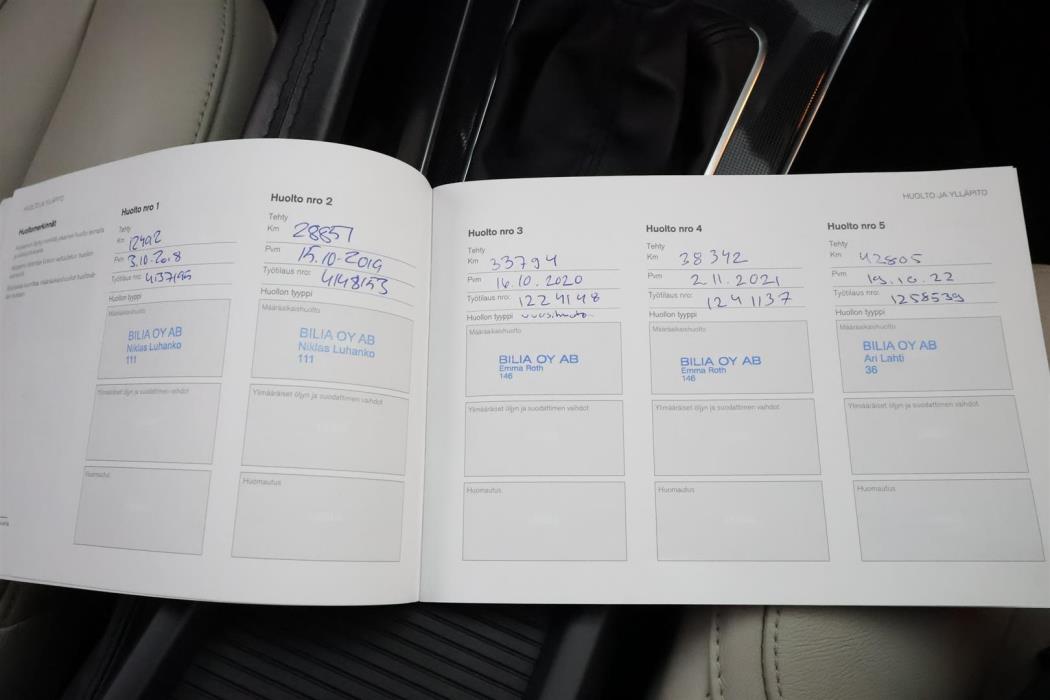 HUOLTO JA YLLÄPITO
Huoltomerkinnät
Huolto nro 1
Tehty
Km 12492
Pvm 3.10.2018
Työtilaus nro: 4137195
Huollon tyyppi
Määräaikaishuolto
BILIA OY AB
Niklas Luhanko
111
Ylimääräiset öljyn ja suodattimen vaihdot
Huomautus
Huolto nro 2
Tehty
Km 28857
Pvm 15.10.2019
Työtilaus nro: 4148153
Huollon tyyppi
Määräaikaishuolto
BILIA OY AB
Niklas Luhanko
111
Ylimääräiset öljyn ja suodattimen vaihdot
Huomautus
HUOLTO JA YLLÄPITO
Huolto nro 3
Tehty
Km 33794
Pvm 16.10.2020
Työtilaus nro: 1224148
Huollon tyyppi vuosihuolto
Määräaikaishuolto
BILIA OY AB
Emma Roth
146
Ylimääräiset öljyn ja suodattimen vaihdot
Huomautus
Huolto nro 4
Tehty
Km 38342
Pvm 2.11.2021
Työtilaus nro: 1241137
Huollon tyyppi
Määräaikaishuolto
BILIA OY AB
Emma Roth
146
Ylimääräiset öljyn ja suodattimen vaihdot
Huomautus
Huolto nro 5
Tehty
Km 42805
Pvm 19.10.22
Työtilaus nro: 1258539
Huollon tyyppi
Määräaikaishuolto
BILIA OY AB
Ari Lahti
36
Ylimääräiset öljyn ja suodattimen vaihdot
Huomautus